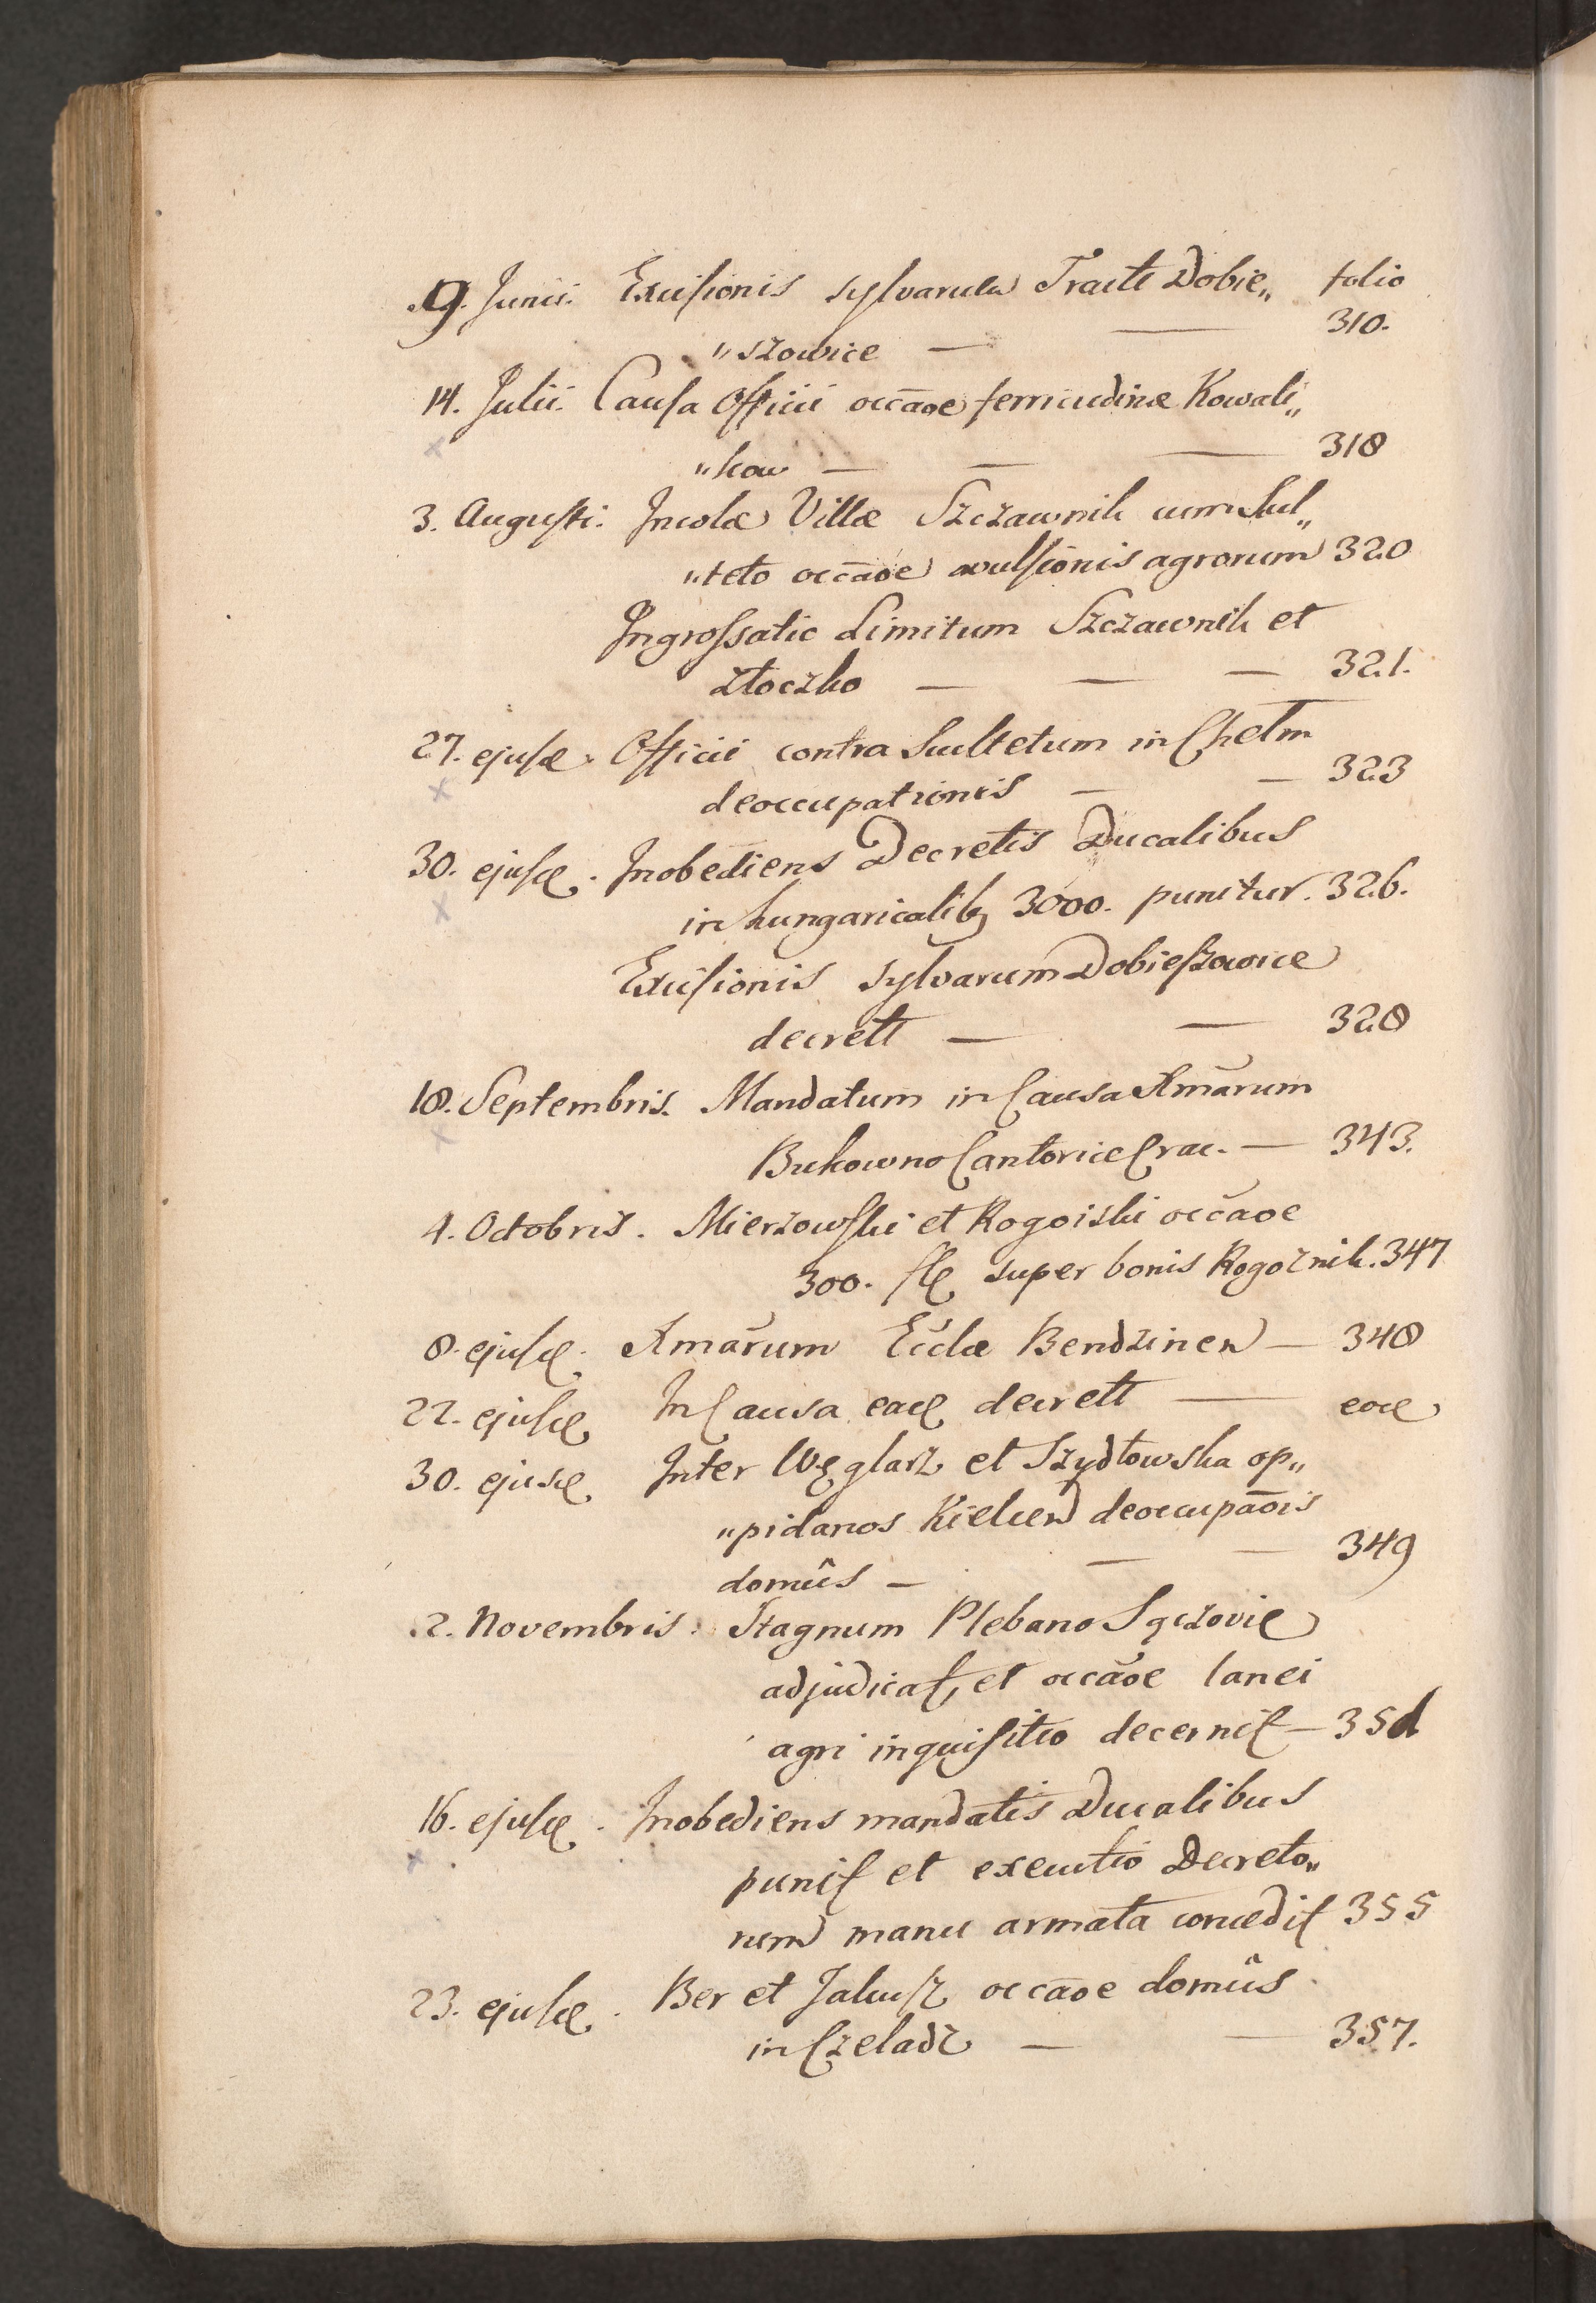 9. Junii. Excisionis sylvarum Tractt Dobie„ folio
„szowice — — 310.
14. Julii. Causa Officii occãoe ferricudinæ Kowali„
„kow — — — 318
3. Augusti. Incolæ Villæ Szczawnik cum Scul„
„teto occãoe avulsionis agrorum 320
Ingrossatio Limitum Szczawnik et
Złoczko — — — 321.
27. ejusd. Officii contra Scultetum in Chełm
deoccupationis — — 323
30. ejusd. Inobediens Decretis Ducalibus
in hungaricalibq 3000. punitur. 326.
Excisionis sylvarum Dobieszowice
decrett — — 328
18. Septembris. Mandatum in Causa Xmãrum
Bukowno Cantoriæ Crac. — 343.
4. Octobris. Mierzowski et Rogoiski occãoe
300. fl super bonis Rogoznik. 347
8. ejusd. Xmãrum Ecclæ Bendzinen — 348
22. ejusd. In Causa ead decrett — eod
30. ejusd. Inter Węglarz et Szydłowska op„
„pidanos Kielcen deoccupãois
domûs — — — 349
2. Novembris. Stagnum Plebano Sączovie
adjudicat, et occãoe lanei
agri inquisitio decernit — 351
16. ejusd. Inobediens mandatis Ducalibus
punit et executio Decreto„
rum manu armata concedit 355
23. ejusd. Ber et Jakusz occãoe domûs
in Czeladz — — 357.